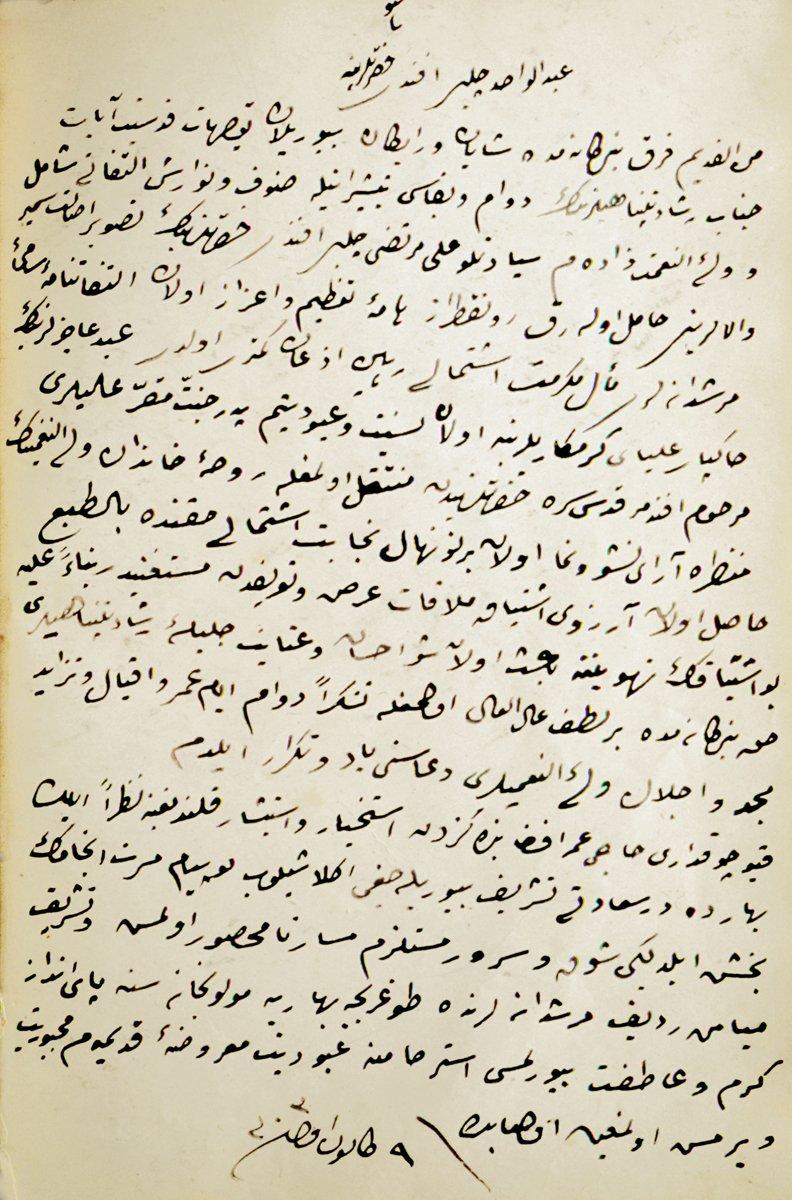 عبدالواحد چلبی افندی حضرتلرینه
من القدیم فرق بندگانه مده شایان و رایکان بیوریلان توجهات قدسیت آیات
جناب رشادتپناهیلرینك دوام و بقاسی تبشیراتیله صنوف و نوازش التفاتی شامل
و ولی النعمت زاده م سیادتلو علی مرتضی چلبی افندی حضرتلرینك تصویر
والالرینی حامل اوله رق رونقطراز هامهٔ تعظیم و اعزاز اولان التفاتنامهٔ سامئ
مرشدانه لری مآل مکرمت اشتمالی رهین اذعان کمتری اولدی عبد عاجزلرینك
خاکپای علیای کرمکاریلرینه اولان نسبت و عبودیتم پدر جنت مقر عالیلری
مرحوم افندمز قدس سره حضرتلرندن منتقل اولمغله روضهٔ خاندان ولی النعمینك
منظره آرای نشو و نما اولان بر نونهال نجابت اشتمالی حقنده بالطبع
حاصل اولان آرزوی اشتیاق ملاقات عرض و تویضدن مستغنیدر بناءً علیه
بو اشتیاقك تهوینته باعث اولان شو احسان و عنایت جلیلهٔ رشادتپناهیلری
حق بندگانه مده بر لطف عال العال اولمغله تشکراً دوام ایام عمر و اقبال و تزاید
مجد و اجلال ولی النعمیلری دعاسنی یاد و تکرار ایلدم
قپو چوقداری حاجی عمر افندی بنده کزدن استخبار و استبشار قلندیغنه نظراً ایلك
بهارده درسعادتی تشریف بیوریله جغی اکلاشیلوب بو پیام مسرت انجامك
بخش ایلدیکی شوق و سرور مستلزم مسار نامحصور اولمش و تشریف
میامن ردیف مرشدانه لرنده طوغریجه بهاریه مولویخانه سنه پای انداز
کرم و عاطفت بیورلمسی استرحامنه عبودیت معروضهٔ قدیمه م مجبوریت
ویرمش اولمغین اولبابده
٩ کانون اول سنه